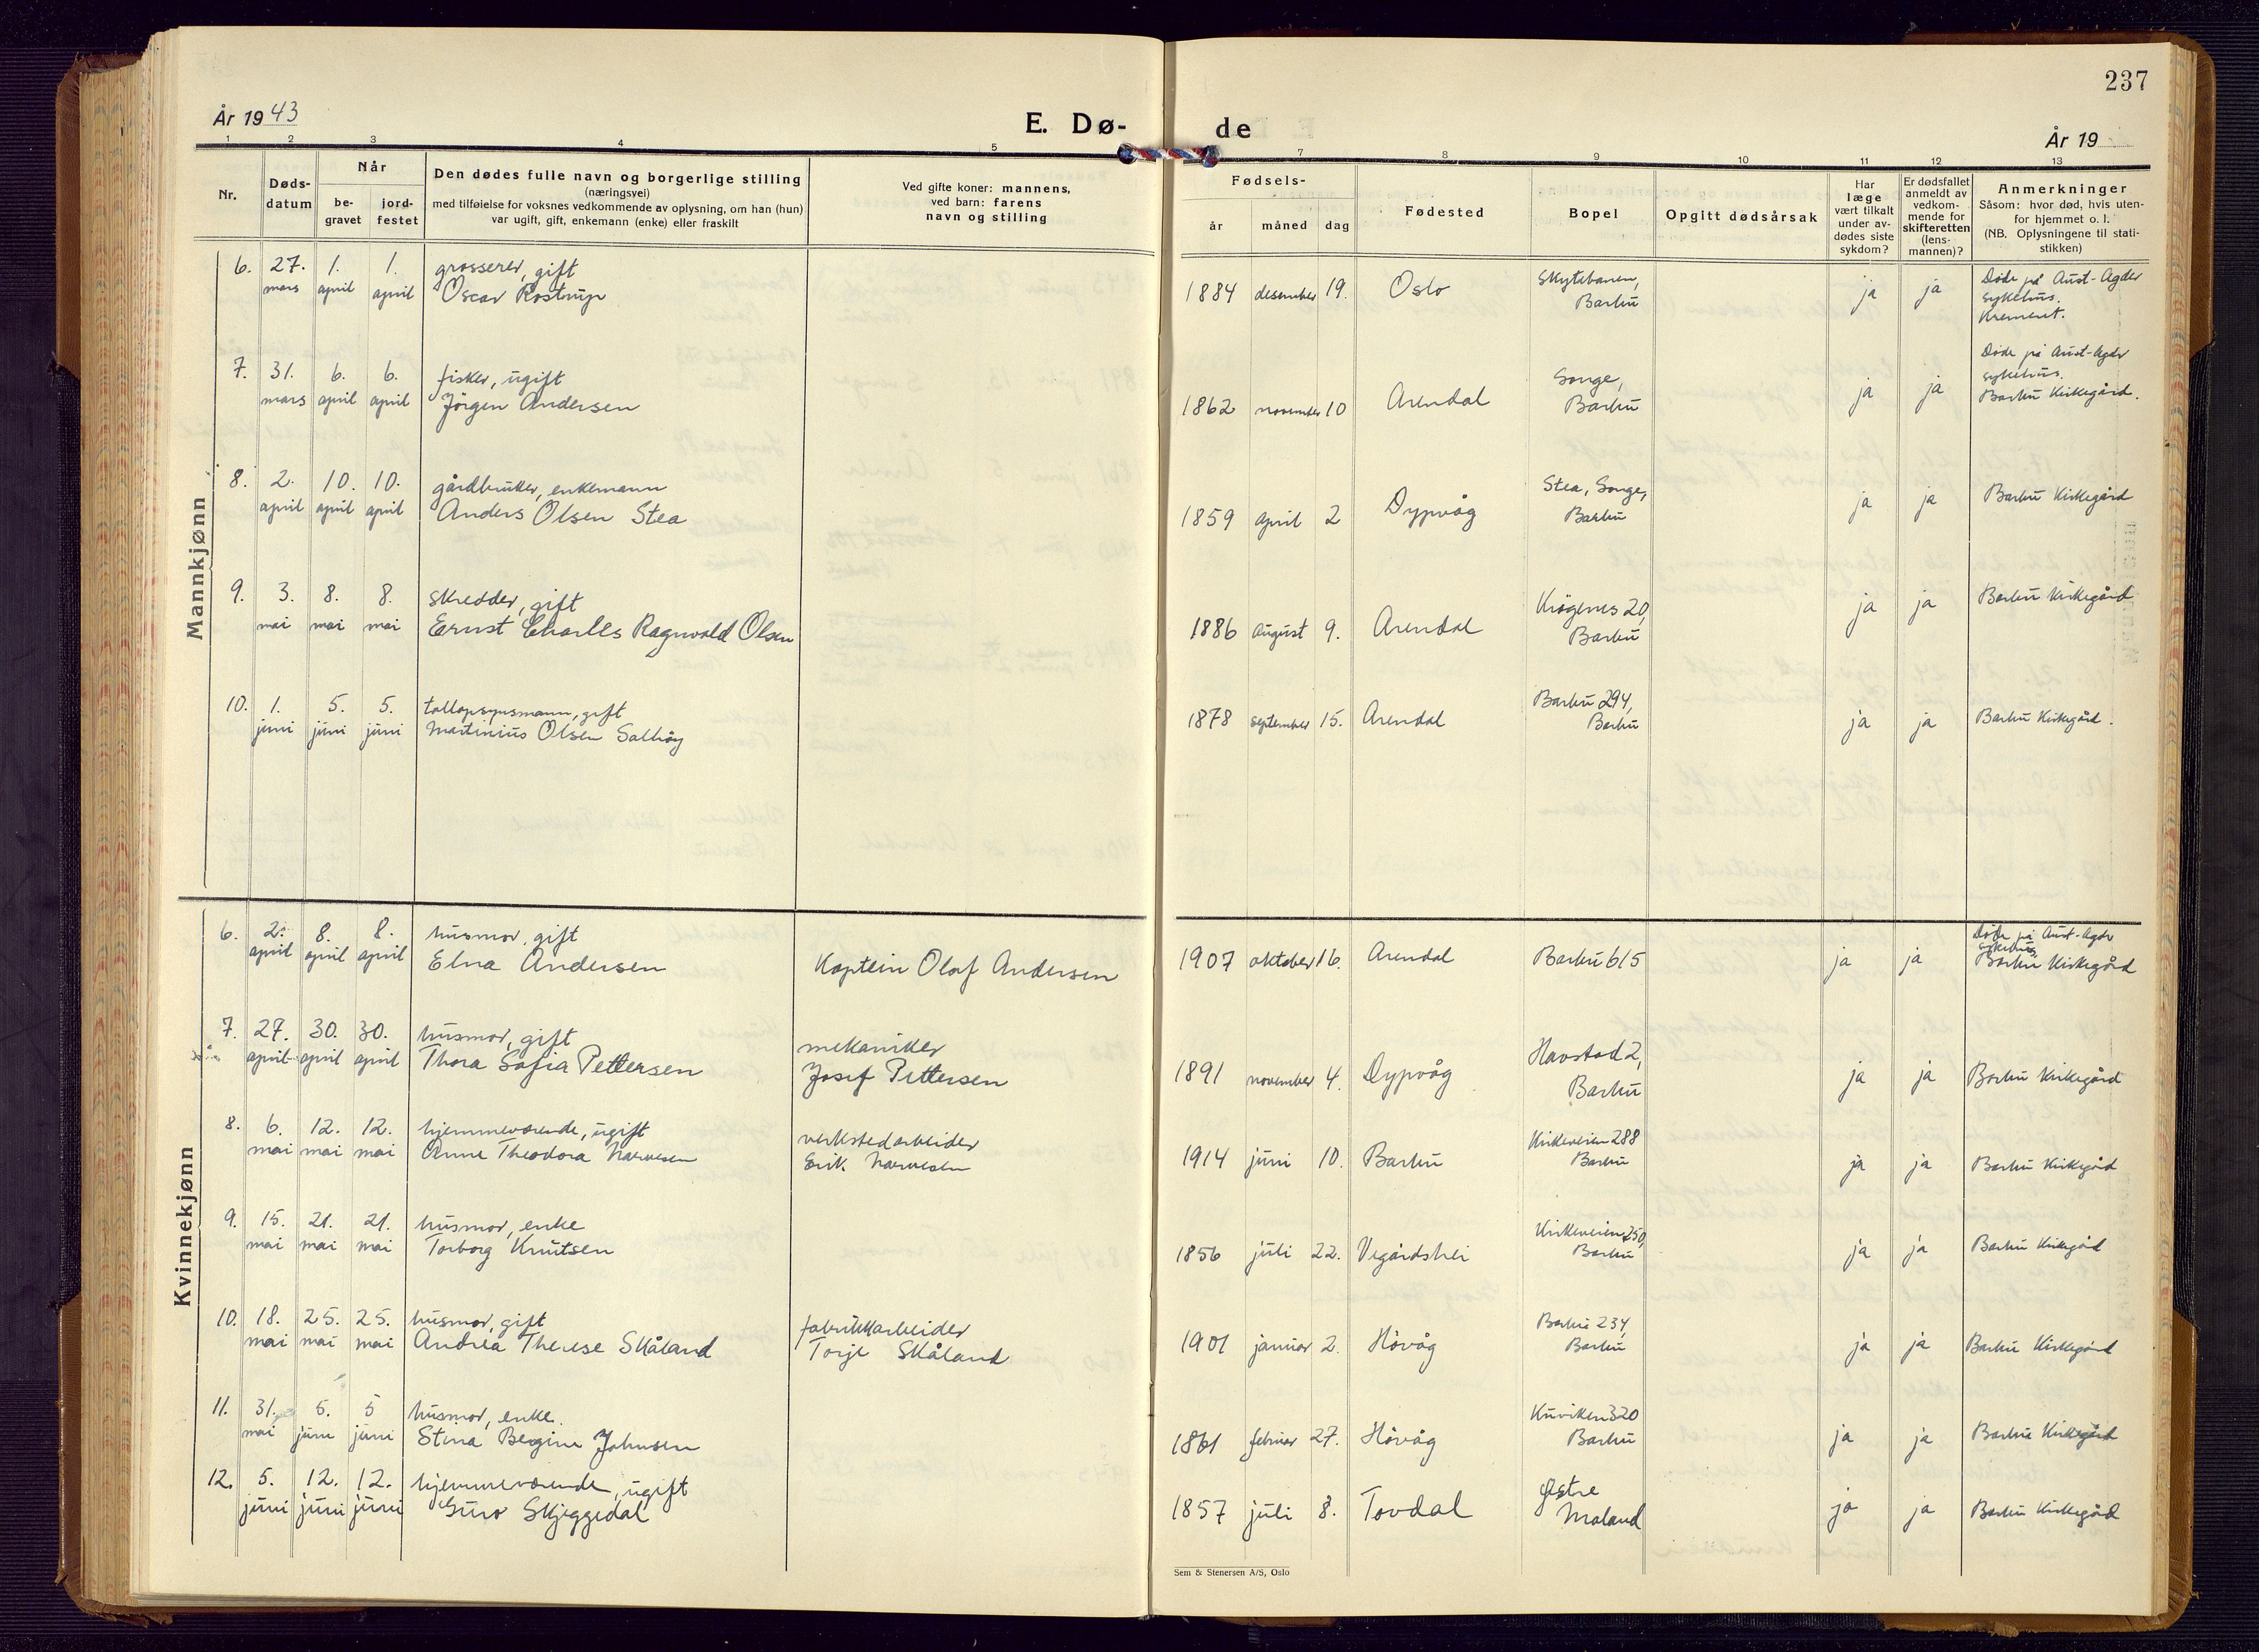 237
År 1943
E. Dø-
de
År 19
1 2 3 4 5 7 8 9 10 11 12 13
Nr.
Døds-
datum
Når
be-
gravet
jord-
festet
Den dødes fulle navn og borgerlige stilling
(næringsvei)
med tilføielse for voksnes vedkommende av oplysning, om han (hun)
var ugift, gift, enkemann (enke) eller fraskilt
Ved gifte koner: mannens,
ved barn: farens
navn og stilling
Fødsels-
år måned dag
Fødested
Bopel
Opgitt dødsårsak
Har
læge
vært tilkalt
under av-
dødes siste
sykdom?
Er dødsfallet
anmeldt av
vedkom-
mende for
skifteretten
(lens-
mannen)?
Anmerkninger
Såsom: hvor død, hvis uten-
for hjemmet o. l.
(NB. Oplysningene til stati-
stikken)
Mannkjønn
6. 27. 1. 1. grosserer, gift
mars april april Oscar Rostrup
1884 desember 19. Oslo Skytebanen,
Barbu
ja ja Døde på Aust-Agder
sykehus.
Kremert.
7. 31. 6. 6. fisker, ugift
mars april april Jörgen Andersen
1862 november 10 Arendal Songe,
Barbu
ja ja Døde på Aust-Agder
sykehus.
Barbu Kirkegård.
8. 2. 10. 10. gårdbruker, enkemann
april april april Anders Olsen Stea
1859 april 2 Dypvåg Stea, Songe,
Barbu
ja ja Barbu Kirkegård
9. 3. 8. 8. skredder, gift
mai mai mai Ernst Charles Ragnvald Olsen
1886 august 9. Arendal Krögenes 20,
Barbu
ja ja Barbu Kirkegård
10. 1. 5. 5. tollopsynsmann, gift
juni juni juni Martinius Olsen
1878 september 15. Arendal Barbu 294,
Barbu
ja ja Barbu Kirkegård.
Kvinnekjønn
6. 2. 8. 8. husmor, gift
april april april Elna Andersen Kaptein Olaf Andersen
1907 oktober 16. Arendal Barbu 615
ja ja Døde på Aust-Agder
sykehus,
Barbu Kirkegård
7. 27. 30. 30. husmor, gift
april april april Thora Sofia Pettersen
mekaniker
Josef Pettersen
1891 november 4. Dypvåg Havstad 2,
Barbu
ja ja Barbu Kirkegård
8. 6. 12. 12. hjemmeværende, ugift
mai mai mai Anne Theodora Narvesen
verkstedarbeider
Erik Narvesen
1914 juni 10. Barbu Kirkeveien 288
Barbu
ja ja Barbu Kirkegård
9. 15. 21. 21. husmor, enke
mai mai mai Torborg Knutsen
1856 juli 22. Vegårdshei Kirkeveien 250,
Barbu
ja ja Barbu Kirkegård
10. 18. 25. 25. husmor, gift
mai mai mai Andrea Therese Skåland
fabrikkarbeider
Torje Skåland
1901 januar 2. Hövåg Barbu 234,
Barbu
ja ja Barbu Kirkegård
11. 31. 5. 5 husmor, enke.
mai juni juni Stina Bergine Johnsen
1861 februar 27. Hövåg Kuviken 320
Barbu
ja ja Barbu Kirkegård
12. 5. 12. 12. hjemmeværende, ugift
juni juni juni Guro Skjeggedal
1857 juli 8. Tovdal Østre
Moland
ja ja Barbu Kirkegård
Sem & Stenersen A/S, Oslo